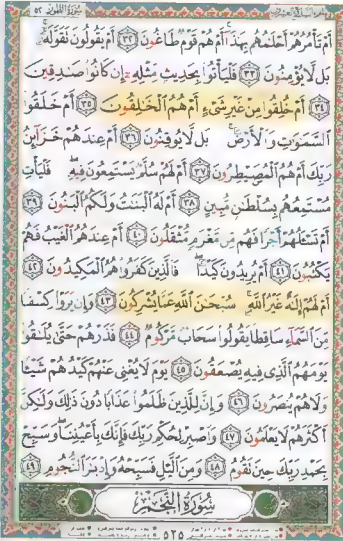 سورة الطور ٥٢
أَمْ تَأْمُرُهُمْ أَحْلَٰمُهُم بِهَٰذَآ أَمْ هُمْ قَوْمٌ طَاغُونَ ٣٢ أَمْ يَقُولُونَ تَقَوَّلَهُۥ
بَل لَّا يُؤْمِنُونَ ٣٣ فَلْيَأْتُوا۟ بِحَدِيثٍ مِّثْلِهِۦٓ إِن كَانُوا۟ صَٰدِقِينَ
٣٤ أَمْ خُلِقُوا۟ مِنْ غَيْرِ شَىْءٍ أَمْ هُمُ ٱلْخَٰلِقُونَ ٣٥ أَمْ خَلَقُوا۟
ٱلسَّمَٰوَٰتِ وَٱلْأَرْضَ بَل لَّا يُوقِنُونَ ٣٦ أَمْ عِندَهُمْ خَزَآئِنُ
رَبِّكَ أَمْ هُمُ ٱلْمُصَۣيْطِرُونَ ٣٧ أَمْ لَهُمْ سُلَّمٌ يَسْتَمِعُونَ فِيهِ فَلْيَأْتِ
مُسْتَمِعُهُم بِسُلْطَٰنٍ مُّبِينٍ ٣٨ أَمْ لَهُ ٱلْبَنَٰتُ وَلَكُمُ ٱلْبَنُونَ ٣٩
أَمْ تَسْـَٔلُهُمْ أَجْرًا فَهُم مِّن مَّغْرَمٍ مُّثْقَلُونَ ٤٠ أَمْ عِندَهُمُ ٱلْغَيْبُ فَهُمْ
يَكْتُبُونَ ٤١ أَمْ يُرِيدُونَ كَيْدًا فَٱلَّذِينَ كَفَرُوا۟ هُمُ ٱلْمَكِيدُونَ ٤٢
أَمْ لَهُمْ إِلَٰهٌ غَيْرُ ٱللَّهِ سُبْحَٰنَ ٱللَّهِ عَمَّا يُشْرِكُونَ ٤٣ وَإِن يَرَوْا۟ كِسْفًا
مِّنَ ٱلسَّمَآءِ سَاقِطًا يَقُولُوا۟ سَحَابٌ مَّرْكُومٌ ٤٤ فَذَرْهُمْ حَتَّىٰ يُلَٰقُوا۟
يَوْمَهُمُ ٱلَّذِى فِيهِ يُصْعَقُونَ ٤٥ يَوْمَ لَا يُغْنِى عَنْهُمْ كَيْدُهُمْ شَيْـًٔا
وَلَا هُمْ يُنصَرُونَ ٤٦ وَإِنَّ لِلَّذِينَ ظَلَمُوا۟ عَذَابًا دُونَ ذَٰلِكَ وَلَٰكِنَّ
أَكْثَرَهُمْ لَا يَعْلَمُونَ ٤٧ وَٱصْبِرْ لِحُكْمِ رَبِّكَ فَإِنَّكَ بِأَعْيُنِنَا وَسَبِّحْ
بِحَمْدِ رَبِّكَ حِينَ تَقُومُ ٤٨ وَمِنَ ٱلَّيْلِ فَسَبِّحْهُ وَإِدْبَٰرَ ٱلنُّجُومِ ٤٩
سُورَةُ ٱلنَّجْمِ
٥٢٥